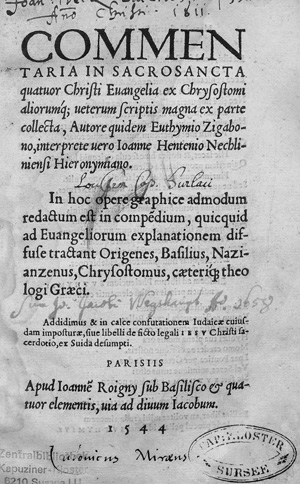 COMMEN
TARIA IN SACROSANCTA
quatuor Christi Euangelia ex Chrysostomi
aliorumq; ueterum scriptis magna ex parte
collecta, Autore quidem Euthymio Zigabo-
no, interprete uero Ioanne Hentenio Nechli-
niensi Hieronymiano.
In hoc opere graphice admodum
redactum est in compēdium, quicquid
ad Euangeliorum explanationem dif-
fuse tractant Origenes, Basilius, Nazi-
anzenus, Chrysostomus, cæteriq; theo
logi Græci.
Addidimus & in calce confutationem Iudaicæ cuius-
dam imposturæ, siue libelli de ficto legali IESV Christi sa-
cerdotio, ex Suida desumpti.
PARISIIS
Apud Ioannē Roigny sub Basilisco & qua-
tuor elementis, uia ad diuum Iacobum.
1544
Zentralbibliothek
Kapuziner-Kloster
6210 Sursee LU
CAP. KLOSTER
SURSEE